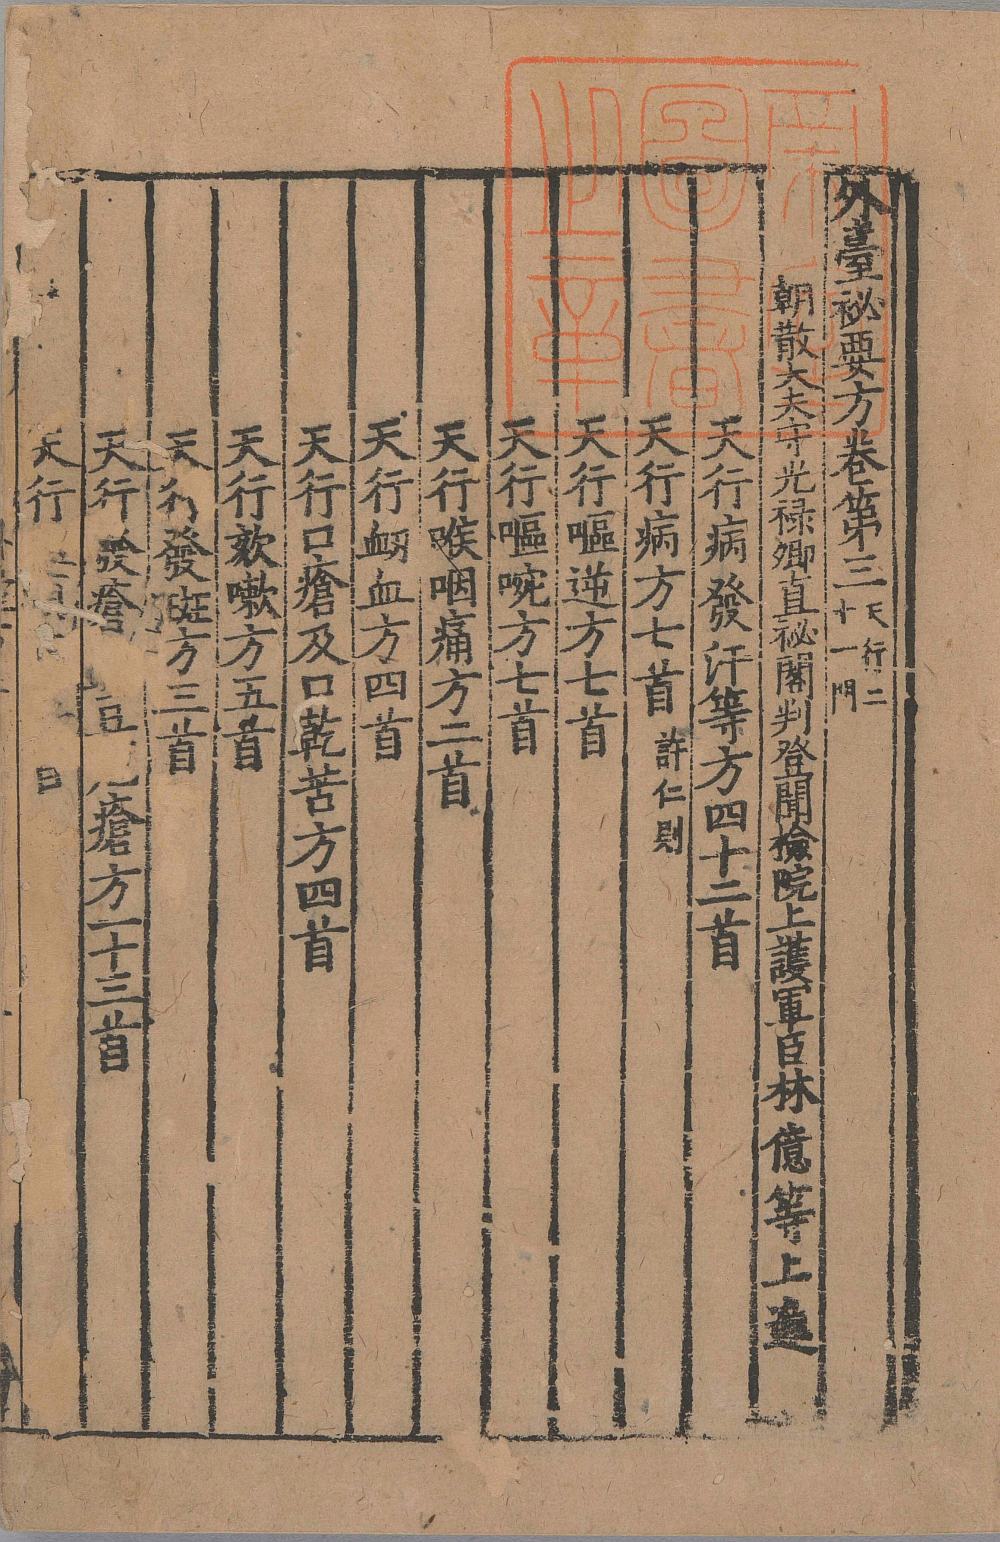 外臺祕要方卷第三天行二十一門
朝散大夫守光祿卿直祕閣判登聞檢院上護軍臣林億等上進
天行病發汗等方四十二首
天行病方七首許仁則
天行嘔逆方七首
天行嘔啘方七首
天行喉咽痛方二首
天行衂血方四首
天行口瘡及口乾苦方四首
天行欬嗽方五首
天行發斑方三首
天行發瘡瘡方一十三首
天行
圖書之章